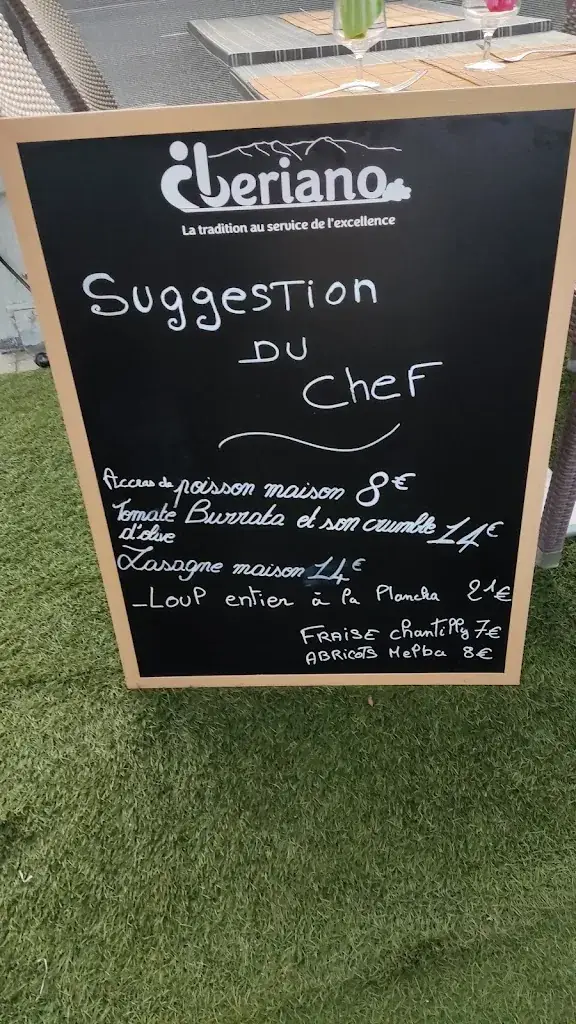 iberiano
La tradition au service de l'excellence
Suggestion
DU
Chef
Accras de poisson maison 8€
Tomate Burrata et son crumble 14€
d'olive
Lasagne maison 14€
-Loup entier à la Plancha 21€
FRAISE chantilly 7€
ABRICOTS Melba 8€